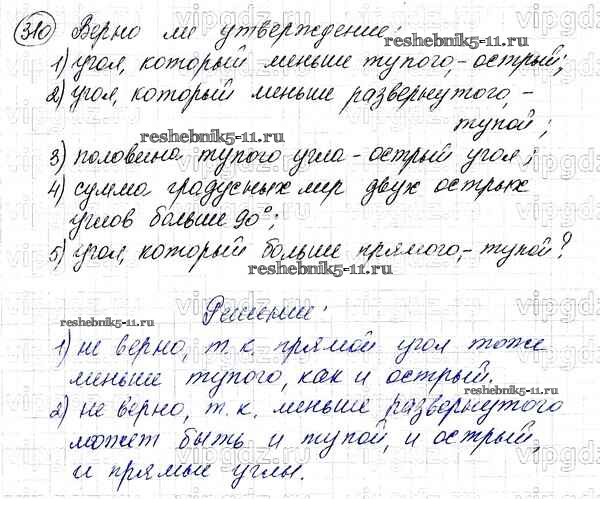 310 Верно ли утверждение:
reshebnik5-11.ru
1) угол, который меньше тупого,- острый;
2) угол, который меньше развернутого, -
тупой;
reshebnik5-11.ru
3) половина тупого угла - острый угол;
4) сумма градусных мер двух острых
углов больше 90°;
5) угол, который больше прямого,- тупой?
reshebnik5-11.ru
Решение:
reshebnik5-11.ru
1) не верно, т.к. прямой угол тоже
меньше тупого, как и острый.
2) не верно, т.к. меньше развернутого
может быть и тупой, и острый,
и прямые углы.
vipgdz.ru